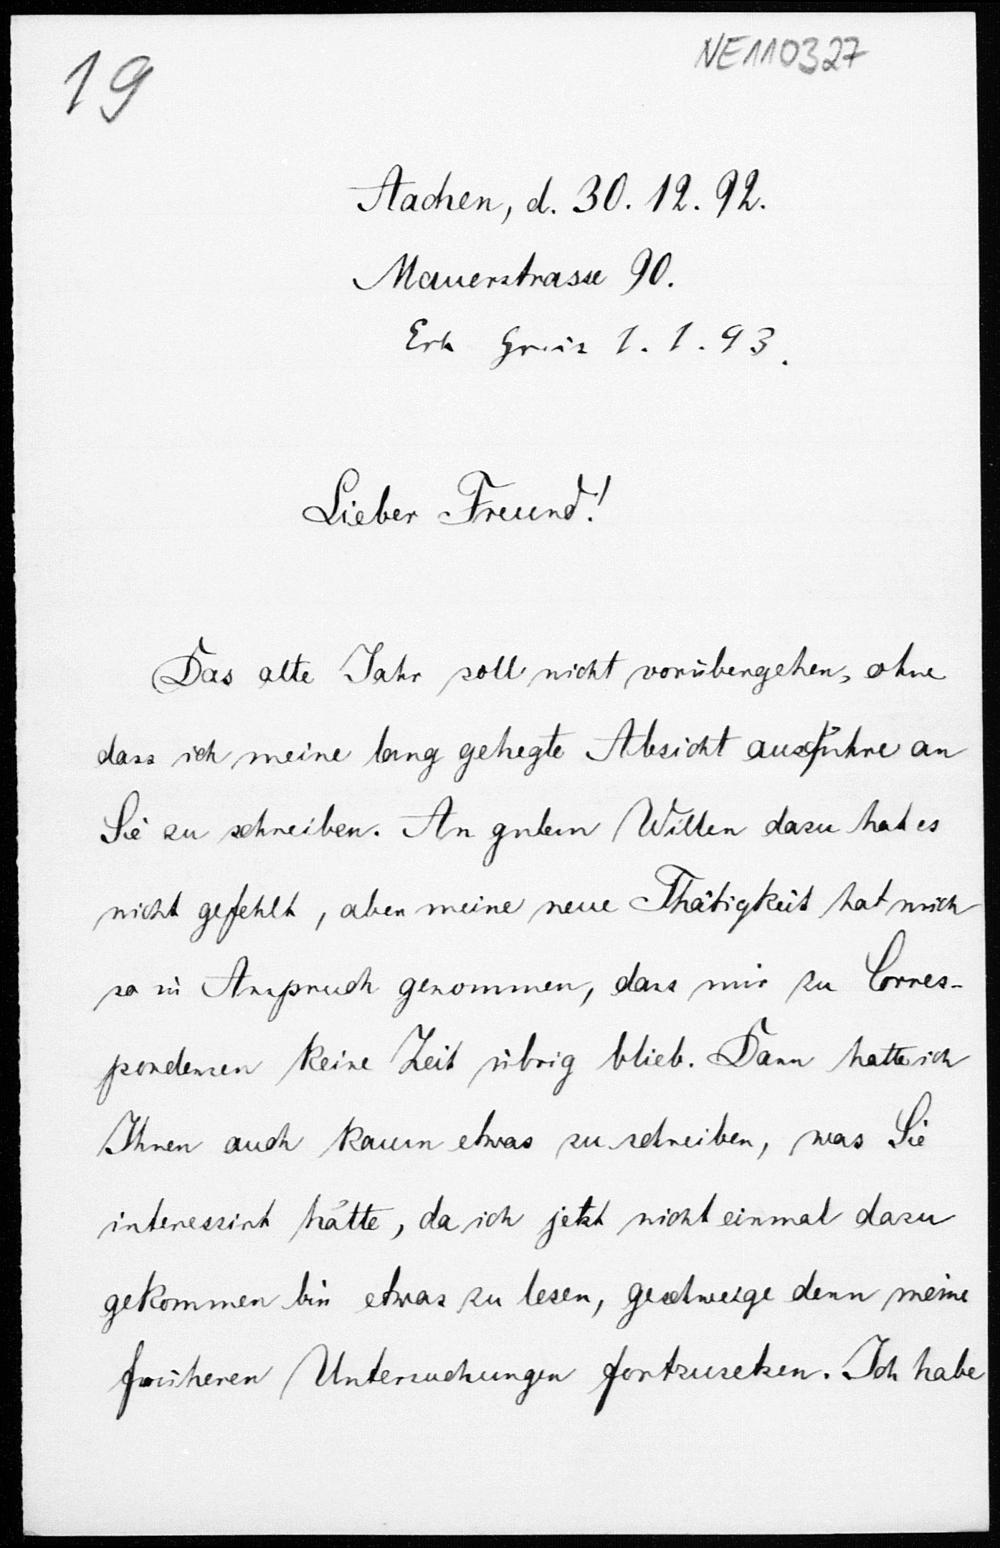 19
NE110327
Aachen, d. 30. 12. 92.
Mauerstrasse 90.
Erh Greiz 1. 1. 93.
Lieber Freund!
Das alte Jahr soll nicht vorübergehen, ohne
dass ich meine lang gehegte Absicht ausführe an
Sie zu schreiben. An gutem Willen dazu hat es
nicht gefehlt, aber meine neue Thätigkeit hat mich
so in Anspruch genommen, dass mir zu Corres-
pondenzen keine Zeit übrig blieb. Dann hatte ich
Ihnen auch kaum etwas zu schreiben, was Sie
interessirt hätte, da ich jetzt nicht einmal dazu
gekommen bin etwas zu lesen, geschweige denn meine
früheren Untersuchungen fortzusetzen. Ich habe